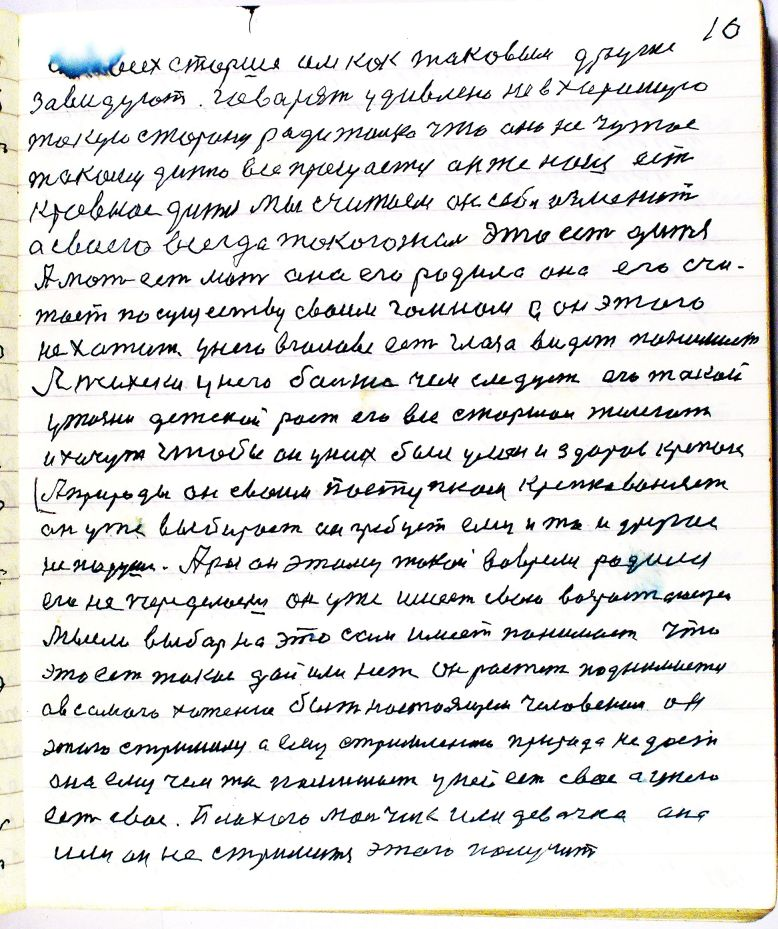 16
всех старше им как таковым другие
завидуют. говарят удивлено не в харошую
такую сторону ради только что оно не чужое
такому дитю все
кревное дитя мы считаем он себя изменит
а своего всегда такого жал это ест дитя
А мат ест мат она его родила она его счи-
тает по существу своим гомном а он этого
не хатит у него в галаве ест глаза видят понимает
А психика у него больше чем следует его такой
детской рост его все старшои
и хочут чтобы он у них был умён и здоров крепок
А природы он своим поступком
он уже выбирает он требует ему и то и другое
не . А раз он этому такой родили
его не переделаеш он уже имеет свою
мысль выбар на это сам имеет понимает что
это ест такое дай или нет он растет подымается
от самого хотения быт настоящем человеком он
этого а ему прирада не даст
она ему чем то у ней ест свое а у него
ест свое. Плахого малчик или девачка она
или он не стримится этого получит